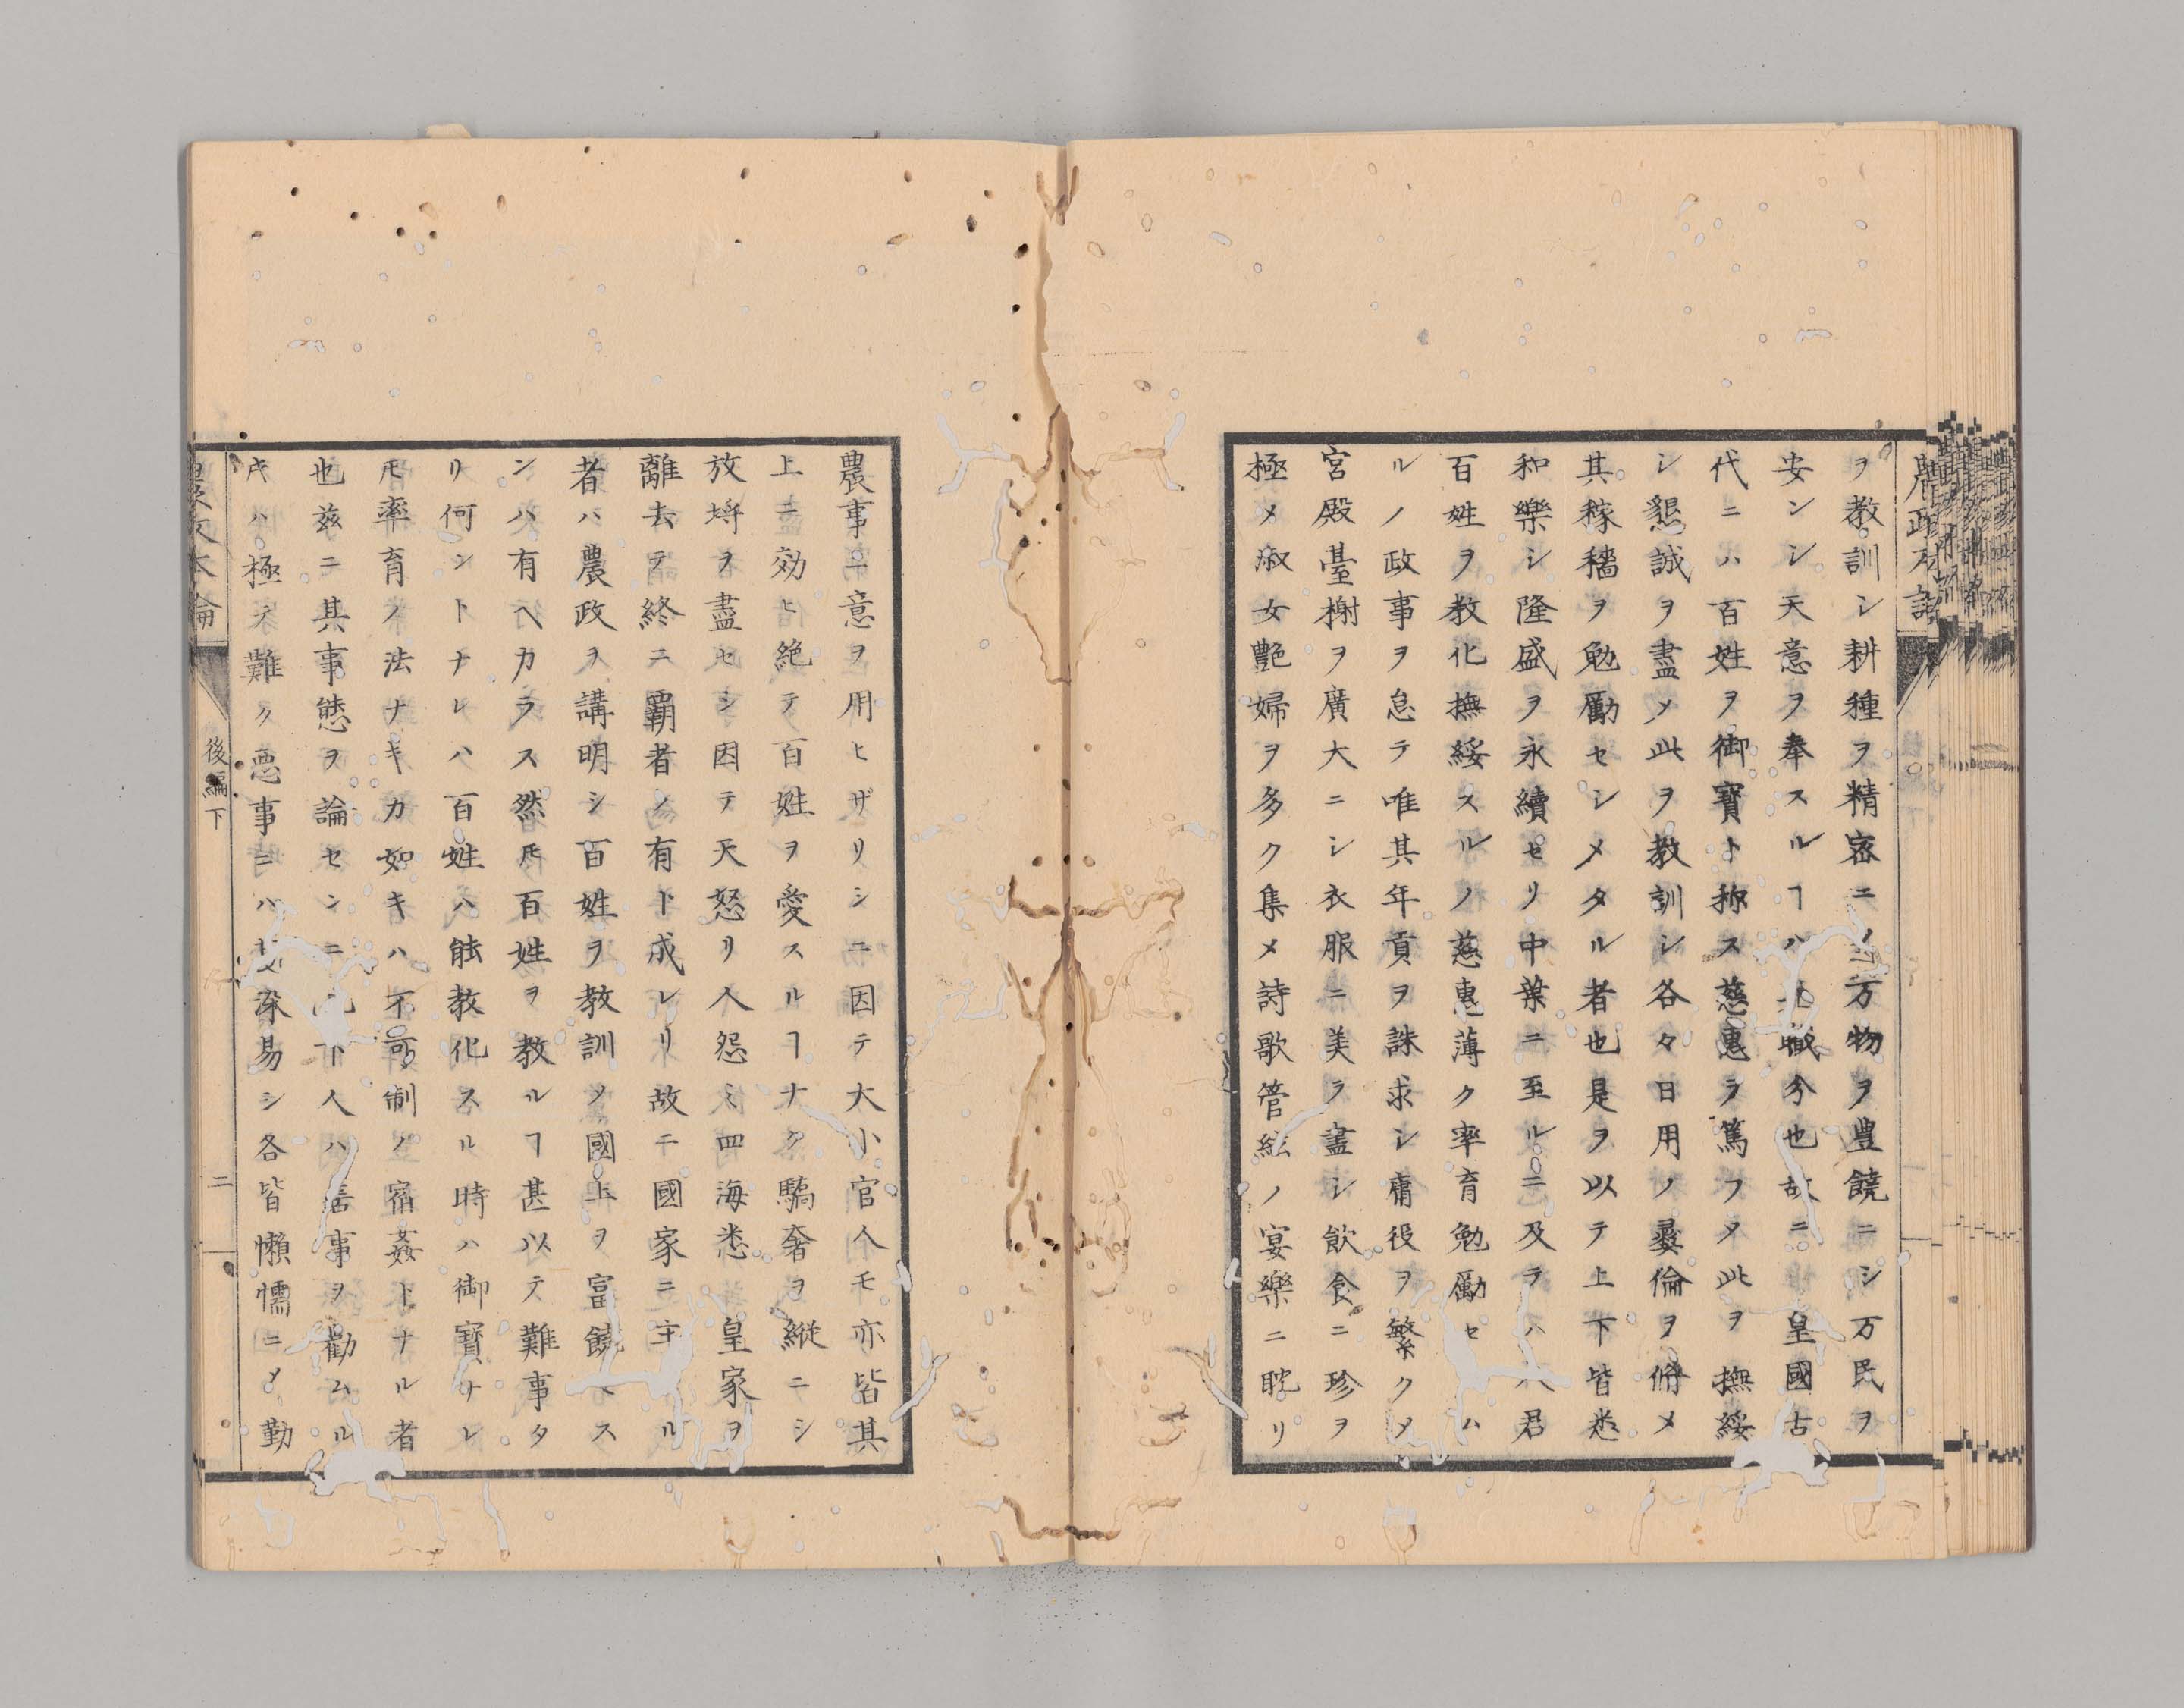 ヲ教訓シ耕種ヲ精密ニ〆万物ヲ豊饒ニシ万民ヲ
安ンシ天意ヲ奉スルヿハ職分也故ニ 皇國古
代ニハ百姓ヲ御寳ト称ス慈惠ヲ篤フ〆此ヲ 撫綏
シ懇誠ヲ盡〆此ヲ教訓シ各々日用ノ彛倫ヲ脩メ
其稼穡ヲ勉勵セシメタル者也是ヲ以テ上下皆悉
和樂シ隆盛ヲ永續セリ中葉ニ至ルニ及ヲハ人君
百姓ヲ教化撫綏スルノ慈惠薄ク率育勉勵セハ
ルノ政事ヲ怠テ唯其年貢ヲ誅求シ庸役ヲ繁ク〆
宮殿臺榭ヲ廣大ニシ衣服ニ美ヲ盡シ飲食ニ珍ヲ
極メ淑女艶婦ヲ多ク集メ詩歌管絃ノ宴樂ニ耽リ
農事ニ意ヲ用ヒザリシニ因テ大小官人モ亦皆其
上ニ効ヒ絶テ百姓ヲ愛スルヿナク驕奢ヲ縦ニシ
放埓ヲ盡セシ因テ天怒リ人怨ミ四海悉 皇家ヲ
離去テ終ニ覇者ノ有ト成レリ故ニ國家ニ主タル
者ハ農政ヲ講明シ百姓ヲ教訓〆國土ヲ富饒ニス
ンハ有ヘカラス然𪜈百姓ヲ教ルヿ甚以テ難事タ
リ何ントナレハ百姓ハ能教化スル時ハ御寳ナレ
𪜈率育ノ法ナキカ如キハ不可制ノ宿姦トナル者
也茲ニ其事態ヲ論センニ下人ハ善事ヲ勸ムル
𪜈ハ極テ難ク悪事ニハ深易シ各皆懶懦ニ〆勤
後編下
二